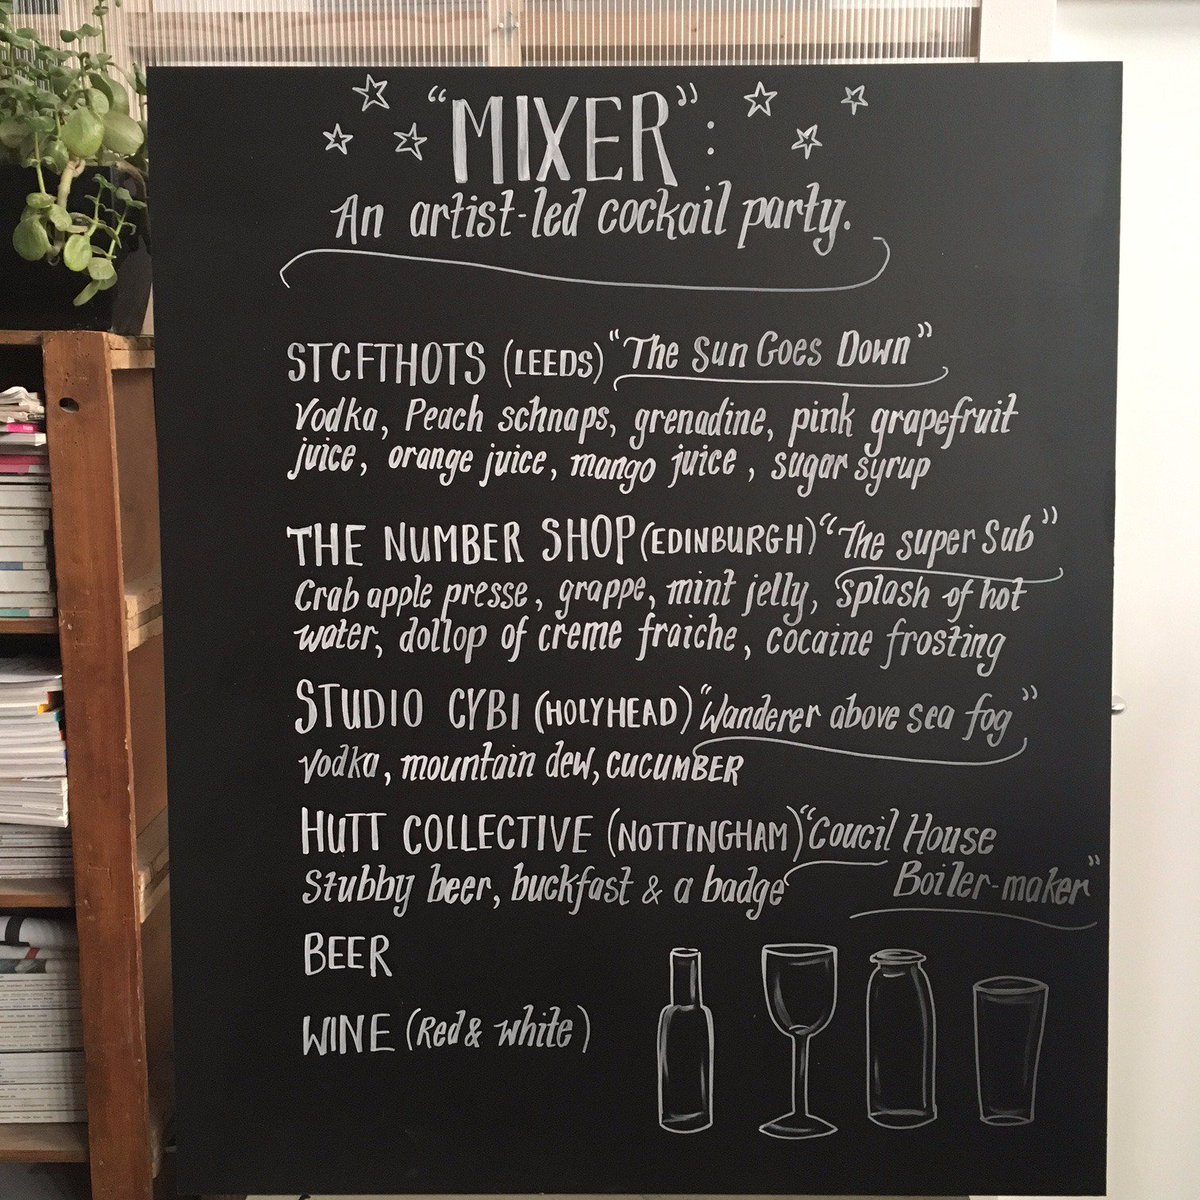 "MIXER":
An artist-led cockail party.
STCFTHOTS (LEEDS) "The Sun Goes Down"
Vodka, Peach schnaps, grenadine, pink grapefruit
juice, orange juice, mango juice, sugar syrup
THE NUMBER SHOP (EDINBURGH) "The super Sub"
Crab apple presse, grappe, mint jelly, splash of hot
water, dollop of creme fraiche, cocaine frosting
STUDIO CYBI (HOLYHEAD) "Wanderer above sea fog"
Vodka, mountain dew, CUCUMBER
HUTT COLLECTIVE (NOTTINGHAM) "Coucil House
Stubby beer, buckfast & a badge Boiler-maker"
BEER
WINE (Red & white)